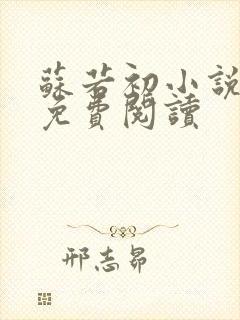 蘇若初小說
免費閱讀
邢志昴